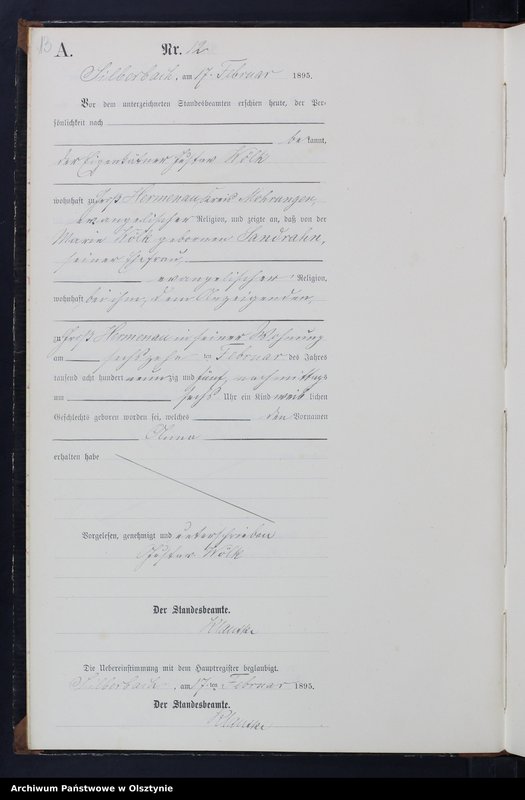 13
A.
Nr. 12
Silberbach, am 17. Februar 1895.
Vor dem unterzeichneten Standesbeamten erschien heute, der Per-
sönlichkeit nach
be kannt,
der Eigenkätner Gustav Kölk
wohnhaft zu Groß Hermenau, Kreis Mohrungen,
evangelischer Religion, und zeigte an, daß von der
Marie Kölk geborenen Sandrahn,
seiner Ehefrau
evangelischer Religion,
wohnhaft bei ihm, dem Anzeigenden,
zu Groß Hermenau in seiner Wohnung
am sechszehn ten Februar des Jahres
tausend acht hundert neunzig und fünf, nachmittags
um sechs Uhr ein Kind weib lichen
Geschlechts geboren worden sei, welches den Vornamen
Anna
erhalten habe
Vorgelesen, genehmigt und unterschrieben
Gustav Kölk
Der Standesbeamte.
Die Uebereinstimmung mit dem Hauptregister beglaubigt.
Silberbach, am 17. ten Februar 1895.
Der Standesbeamte.
Archiwum Państwowe w Olsztynie